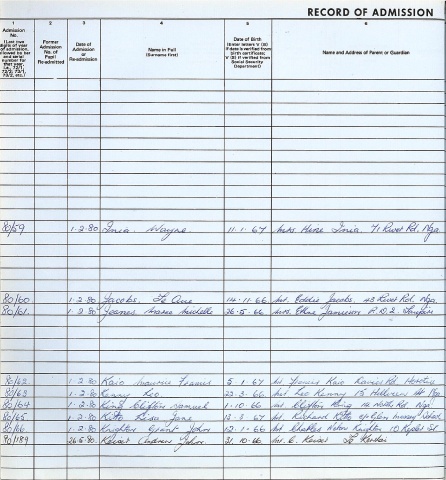 RECORD OF ADMISSION
1 2 3 4 5 6
Admission No. (Last two digits of year of admission, followed by bar and serial number for that year, i.e., 72/1, 72/2, 73/1, 73/2, etc.)
Former Admission No. of Pupil Re-admitted
Date of Admission or Re-admission
Name in Full (Surname first)
Date of Birth (Enter letters V (B) if date is verified from birth certificate; V (S) if verified from Social Security Department)
Name and Address of Parent or Guardian
80/59 1.2.80 Inia Wayne 11.1.67 Mrs Hene Inia 71 River Rd. Nga.
80/60 1.2.80 Jacobs. Te Aue 14.11.66 Mr. Eddie Jacobs. 43 River Rd. Nga.
80/61. 1.2.80 Michelle 26.5.66 Mrs. Jamieson R.D.2
80/62 1.2.80 Kaio Maurice Francis 5.1.67 Mr Francis Kaio Rd.
80/63 1.2.80 Kenny Leo 22.3.66 Mr Leo Kenny 15 St Nga
80/64 1.2.80 King Clifton Samuel 1.10.66 Mr. Clifton King Rd Nga
80/65 1.2.80 Kite Jane 13.3.67 Mr Richard Kite
80/66 1.2.80 Knighton Grant John 12.1.66 Mr Charles Knighton 10 St
80/189 26.5.80 Andrew John 31.10.66 Mr. C. Te